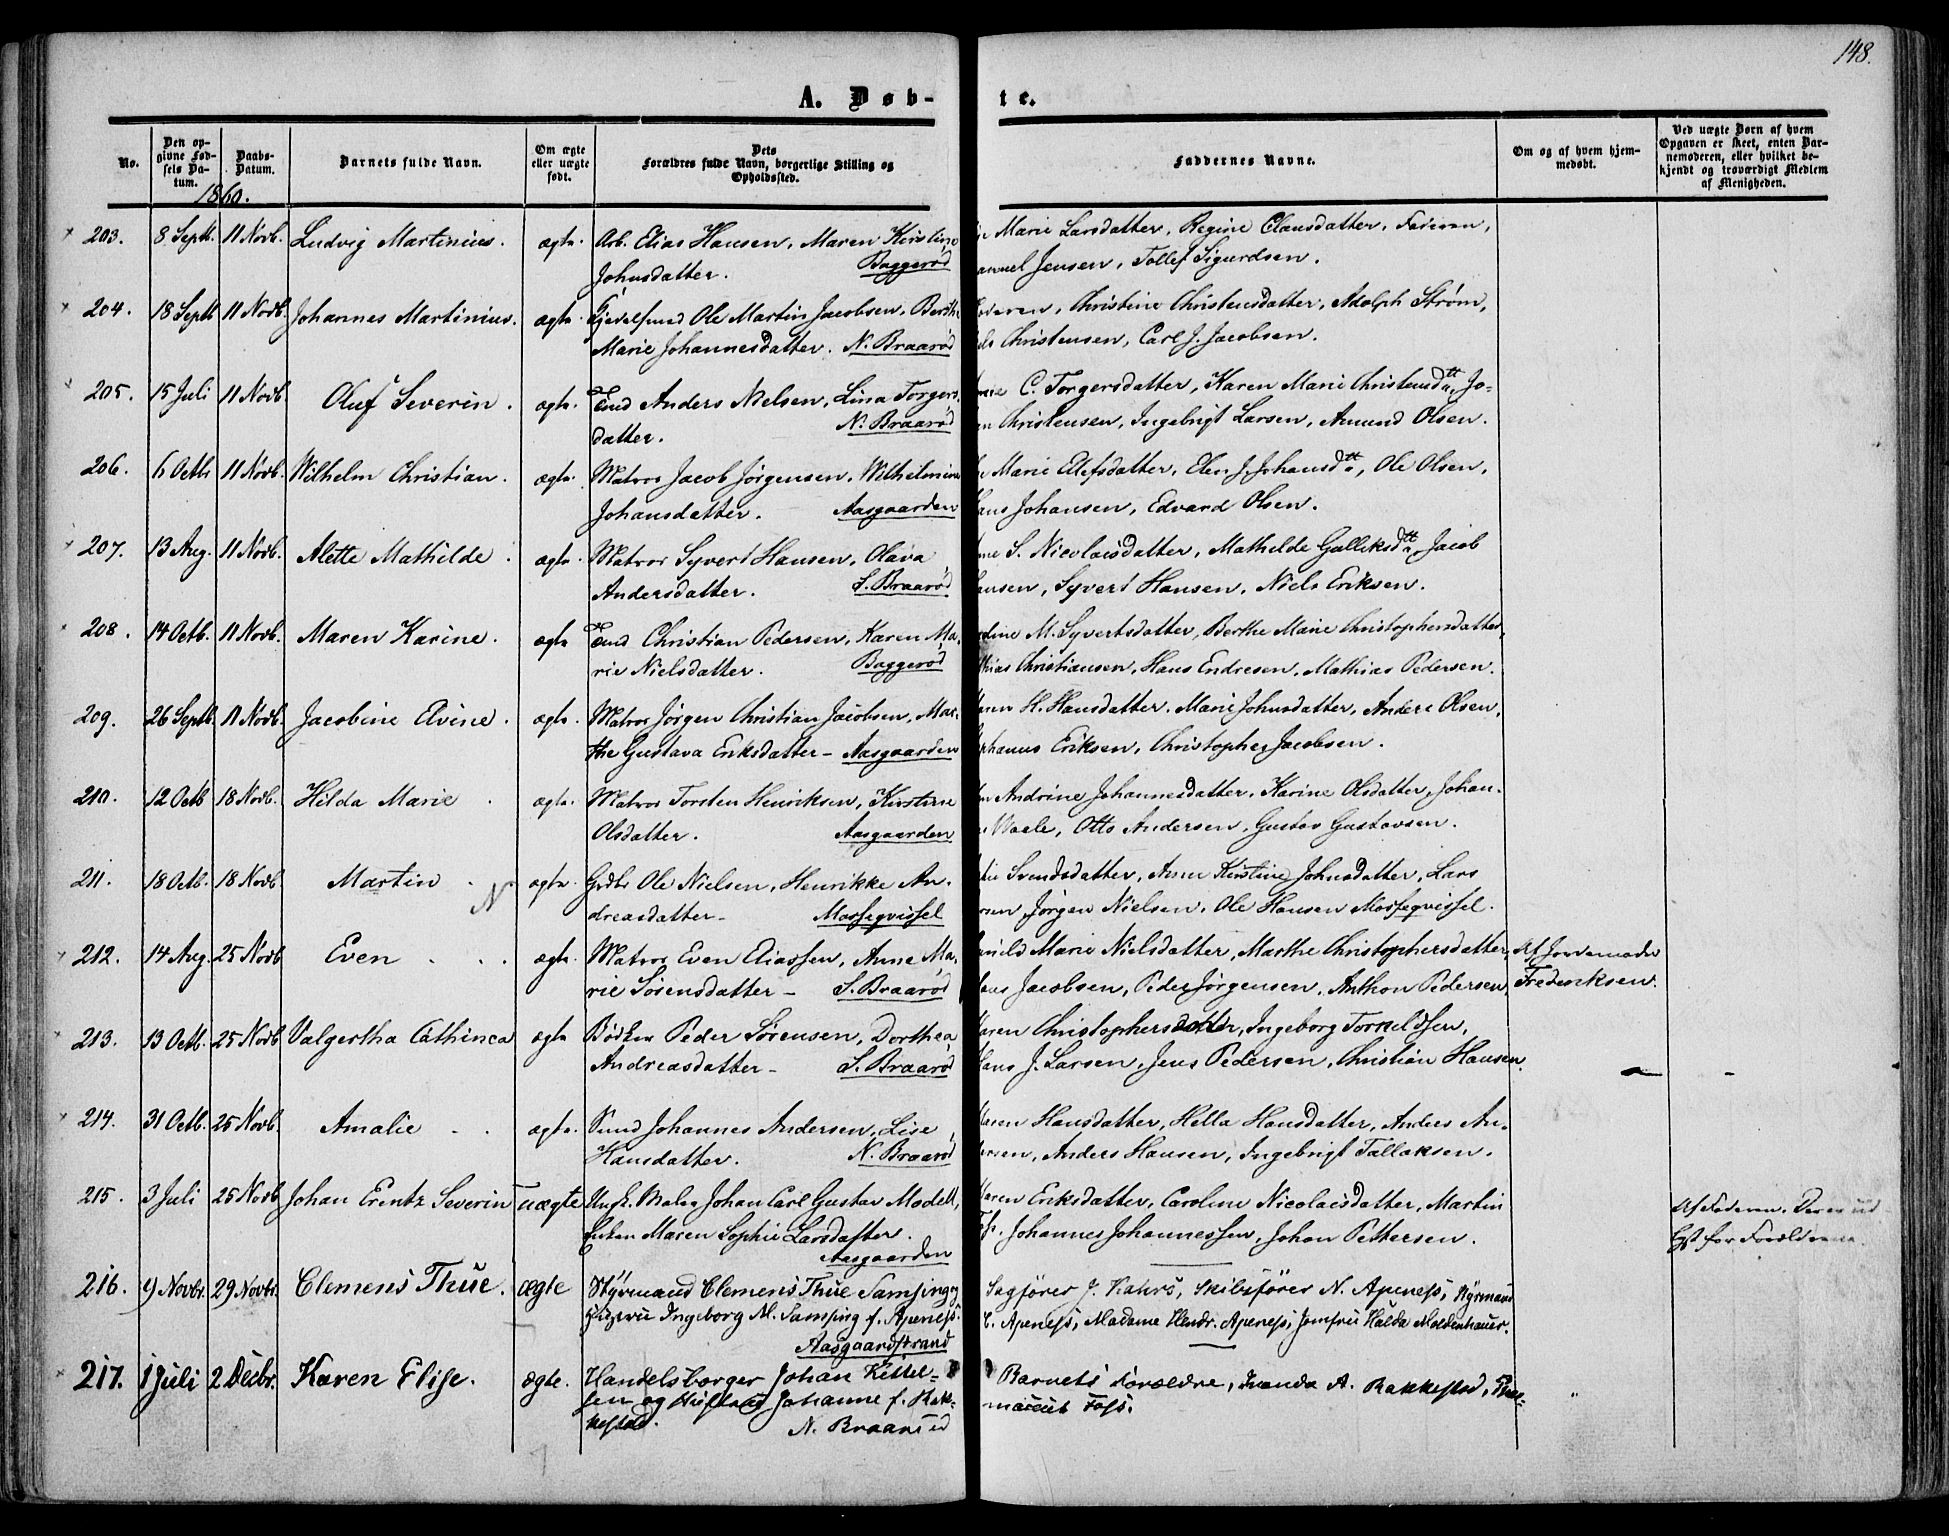 148.
A. Døb-
te.
No.
Den opgivne Fødsels Datum.
Daabs-Datum.
Barnets fulde Navn.
Om ægte eller uægte født.
Dets Forældres fulde Navn, borgerlige Stilling og Opholdssted.
Faddernes Navne.
Om og af hvem hjemmedøbt.
Ved uægte Børn af hvem Opgaven er skeet, enten Barnemoderen, eller hvilket bekjendt og troværdigt Medlem af Menigheden.
1860.
203. 8 Septb. 11 Novb. Ludvig Martinius. ægte. Arb. Elias Hansen, Maren Kirstine
Johnsdatter. Baggerød
Marie Larsdatter, Regine Clausdatter, Faderen,
Jensen, Tollef Sigurdsen.
204. 18 Septb 11 Novb. Johannes Martinius. ægte. Ole Martin Jacobsen, Berthe
Marie Johannesdatter. N. Braarød
Christine Christensdatter, Adolph Strøm,
Christensen, Carl J. Jacobsen.
205. 15 Juli 11 Novb Oluf Severin. ægte. Tmd Anders Nielsen, Lina Torgers
datter. N. Braarød
C. Torgersdatter, Karen Marie Christensdtt, Jo-
Christensen, Ingebrigt Larsen, Amund Olsen.
206. 6 Octb 11 Novb. Wilhelm Christian. ægte. Matros Jacob Jørgensen, Wilhelmine
Johansdatter. Aasgaarden
Marie Elefsdatter, Elen J. Johansdtt, Ole Olsen,
Hans Johansen, Edvard Olsen.
207. 13 Aug. 11 Novb. Alette Mathilde. ægte. Matros Syvert Hansen, Olava
Andersdatter. S. Braarød
S. Nicolaisdatter, Mathilde Galliksdtt, Jacob
Hansen, Syvert Hansen, Niels Eriksen.
208. 14 Octb. 11 Novb. Maren Karine. ægte Tmd Christian Pedersen, Karen Ma-
rie Nielsdatter. Baggerød
M. Syvertsdatter, Berthe Marie Christophersdatter,
Christiansen, Hans Endresen, Mathias Pedersen.
209. 26 Septb. 11 Novb. Jacobine Elvine. ægte. Matros Jørgen Christian Jacobsen, Mar-
the Gustava Eriksdatter - Aasgaarden
Maren H. Hansdatter, Marie Johnsdatter, Anders Olsen,
Eriksen, Christopher Jacobsen.
210. 12 Octb 18 Novb. Hilda Marie. ægte. Matros Torsten Henriksen, Kirstine
Olsdatter. Aasgaarden
Andrine Johannesdatter, Karine Olsdatter, Johan-
Waale, Otto Andersen, Gustav Gustavsen.
211. 18 Octb. 18 Novb Martin. N ægte. Grdbr Ole Nielsen, Henrikke An-
dreasdatter - Mossegvissel
Svendsdatter, Anne Kirstine Johnsdatter, Lars
Jørgen Nielsen, Ole Hansen Mossegvissel.
212. 14 Aug. 25 Novb Even. ægte. Matros Even Eliassen, Anne Ma-
rie Sørensdatter - S. Braarød
Marie Nielsdatter, Marthe Christophersdatter,
Hans Jacobsen, Peder Jørgensen, Anthon Pedersen,
Af Jordemoder
Frederiksen.
213. 13 Octb. 25 Novb Valgertha Cathinca ægte Bødker Peder Sørensen, Dorthea
Andreasdatter - S. Braarød
Maren Christophersdatter, Ingeborg Torkeldsen,
Hans J. Larsen, Jens Pedersen, Christian Hansen.
214. 31 Octb. 25 Novb. Amalie. ægte. Smd Johannes Andersen, Lise
Hansdatter. N. Braarød
Maren Hansdatter, Hella Hansdatter, Anders An-
dersen, Anders Hansen, Ingebrigt Tallaksen.
215. 3 Juli 25 Novb Johan Erentz Severin uægte Ungk. Maler Johan Carl Gustav Modell,
Enken Maren Sophie Larsdatter.
Aasgaarden
Maren Eriksdatter, Caroline Nicolaisdatter, Martin
Johannes Johannessen, Johan Pettersen.
Af Faderen. Der er ud
lyst for Forældrene.
216. 9 Novbr. 29 Novbr. Clemens Thue. ægte Styrmand Clemens Thue Samsing og
Hustru Ingeborg M. Samsing f. Apeness.
Aasgaardstrand
Sagfører J. Kahrs, Skibsfører N. Apeness, Styrmand
C. Apeness, Madame Hendr. Apeness, Jomfru Hulda Moldenhauer.
217. 1 Juli 2 Decbr. Karen Elise. ægte. Handelsborger Johan Kittel-
sen og Hustru Johanne f. Rak-
kestad. N. Braarød
Barnets Forældre, A. Rakkestad,
Foss.